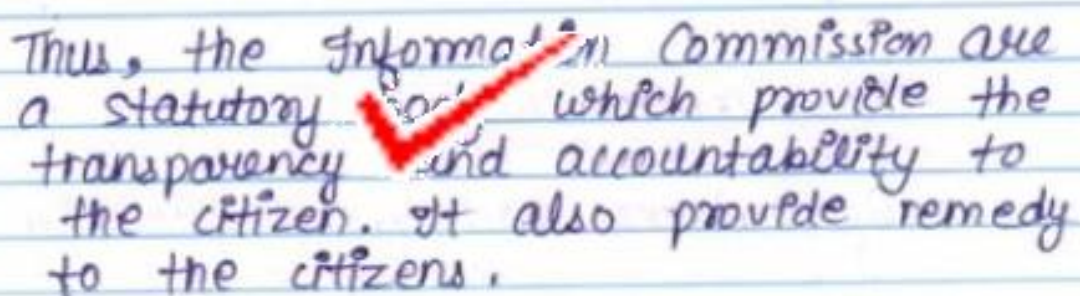 Thus, the Information Commission are
a statutory body which provide the
transparency and accountability to
the citizen. It also provide remedy
to the citizens.